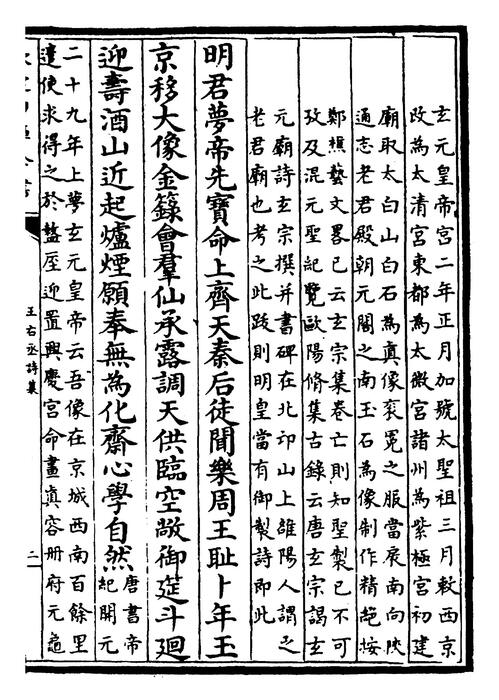 玄元皇帝宫二年正月加號太聖祖三月敕西京
改為太清宫東都為太微宫諸州為紫極宫初建
廟取太白山白石為真像衮冕之服當扆南向陜
通志老君殿朝元閣之南玉石為像制作精絶按
鄭樵藝文畧已云玄宗集卷亡則知聖製已不可
攷及混元聖紀覽歐陽脩集古錄云唐玄宗謁玄
元廟詩玄宗撰并書碑在北邙山上雒陽人謂之
老君廟也考之此跋則明皇當有御製詩即此
明君夢帝先寶命上齊天秦后徒聞樂周王耻卜年玉
京移大像金籙會羣仙承露調天供臨空敞御筵斗廻
迎壽酒山近起爐煙願奉無為化齋心學自然唐書帝
紀開元
二十九年上夢玄元皇帝云吾像在京城西南百餘里
遣使求得之於盩厔迎置興慶宫命畫真容册府元龜
王右丞詩集
二